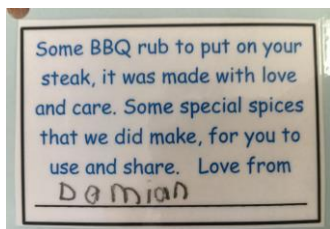 Some BBQ rub to put on your
steak, it was made with love
and care. Some special spices
that we did make, for you to
use and share. Love from
Damian